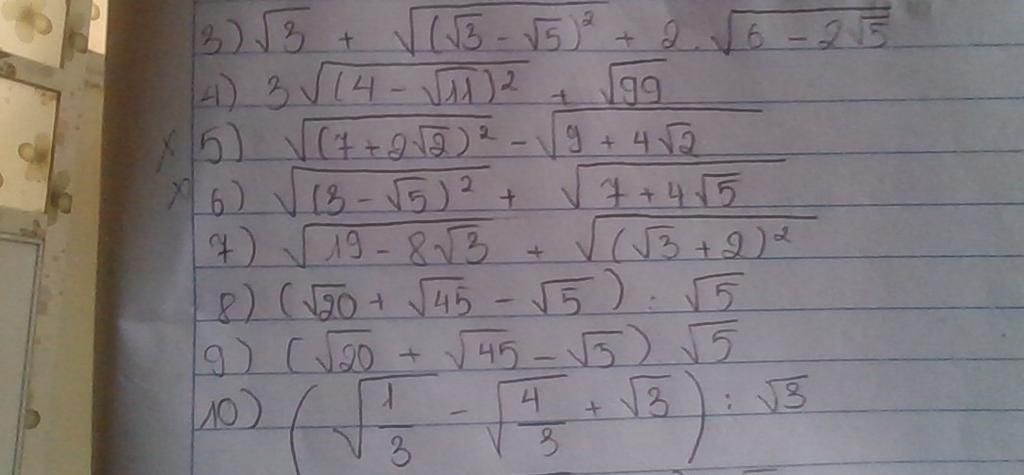 3) √3 + √(√3 - √5)² + 2.√6 - 2√5
4) 3√(4 - √11)² + √99
x 5) √(7 + 2√2)² - √9 + 4√2
x 6) √(3 - √5)² + √7 + 4√5
7) √19 - 8√3 + √(√3 + 2)²
8) (√20 + √45 - √5) : √5
9) (√20 + √45 - √5) √5
10) (√1/3 - √4/3 + √3) : √3